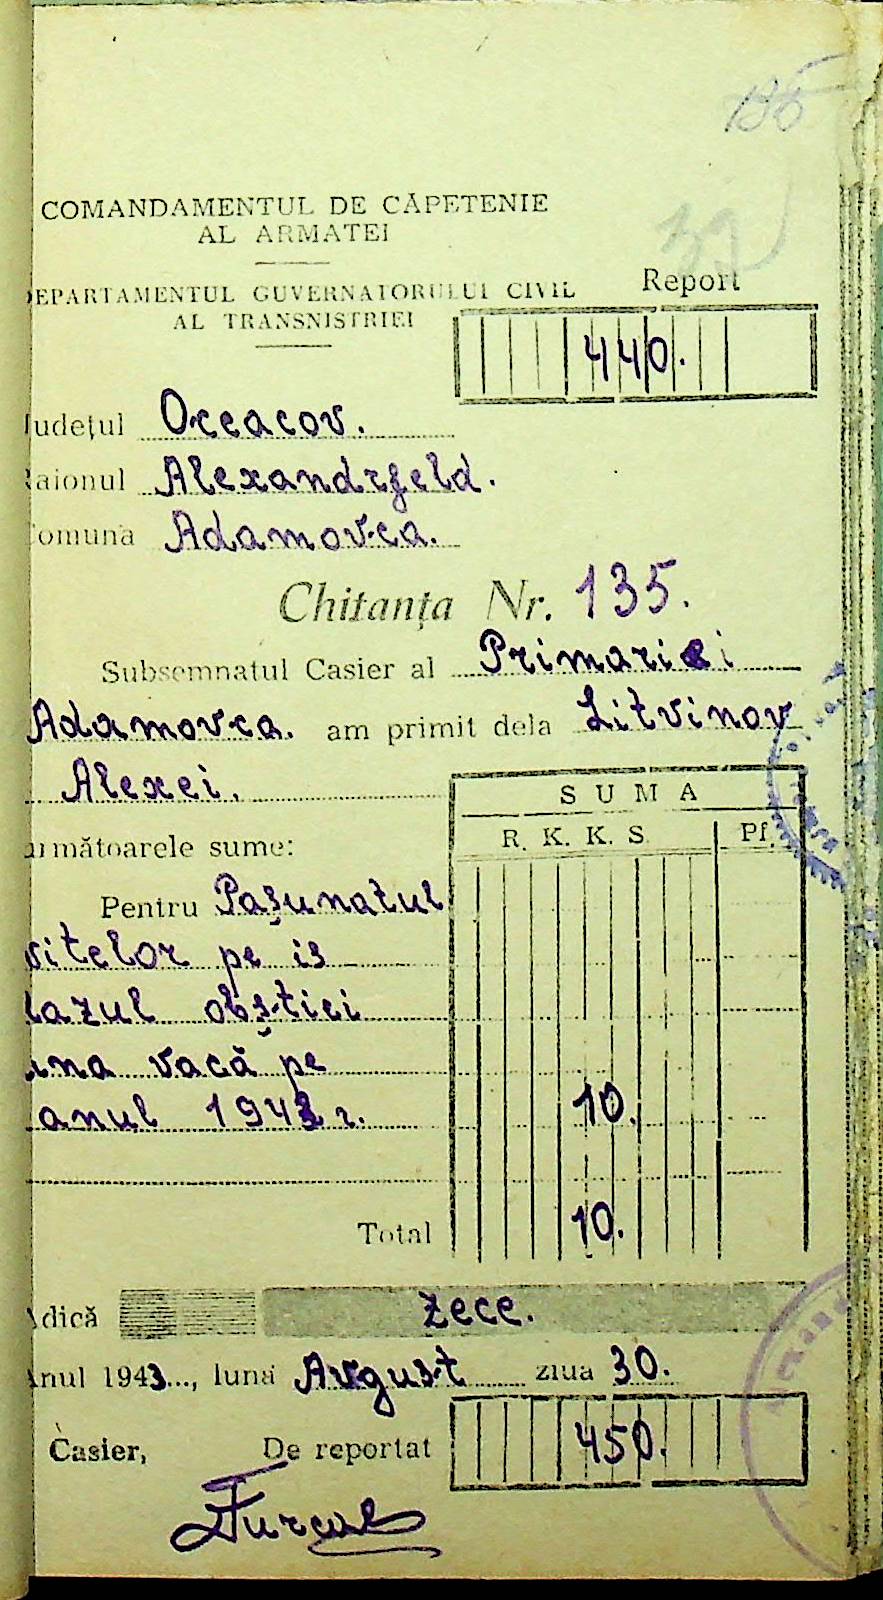 135
39
COMANDAMENTUL DE CĂPETENIE
AL ARMATEI
DEPARTAMENTUL GUVERNATORULUI CIVIL
AL TRANSNISTRIEI
Report
440.
Județul Oceacov.
Raionul Alexandrfeld.
Comuna Adamovca.
Chitanța Nr. 135.
Subsemnatul Casier al Primariei
Adamovca. am primit dela Litvinov
Alexei.
SUMA
următoarele sume:
R. K. K. S. Pf.
Pentru Pașunatul
vitelor pe is
lazul obștiei
una vacă pe
anul 1943 г. 10.
Total 10.
Adică zece.
Anul 1943..., luna Avgust ziua 30.
Casier, De reportat 450.